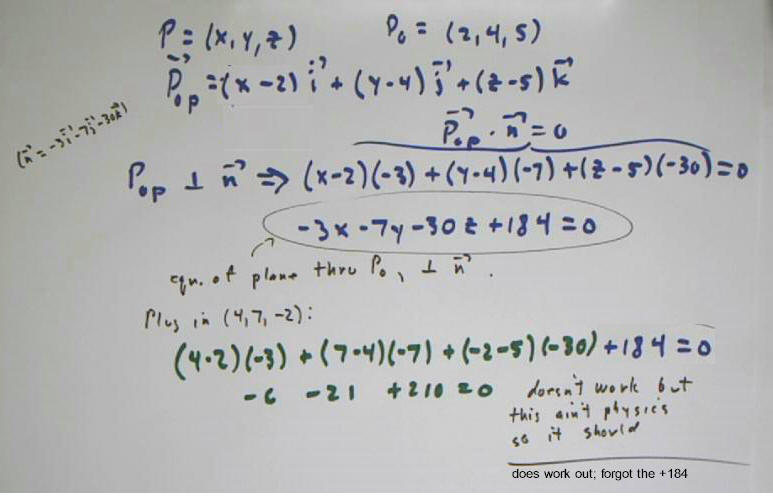 P = (x, y, z) P₀ = (2, 4, 5)
P⃗₀p = (x - 2) i⃗ + (y - 4) j⃗ + (z - 5) k⃗
(n⃗ = -3i⃗ - 7j⃗ - 30k⃗)
P⃗₀p · n⃗ = 0
P₀p ⊥ n⃗ ⇒ (x-2)(-3) + (y-4)(-7) + (z-5)(-30) = 0
-3x - 7y - 30z + 184 = 0
eqn. of plane thru P₀, ⊥ n⃗.
Plug in (4, 7, -2):
(4-2)(-3) + (7-4)(-7) + (-2-5)(-30) + 184 = 0
-6 -21 +210 = 0
doesn't work but
this ain't physics
so it should
does work out; forgot the +184